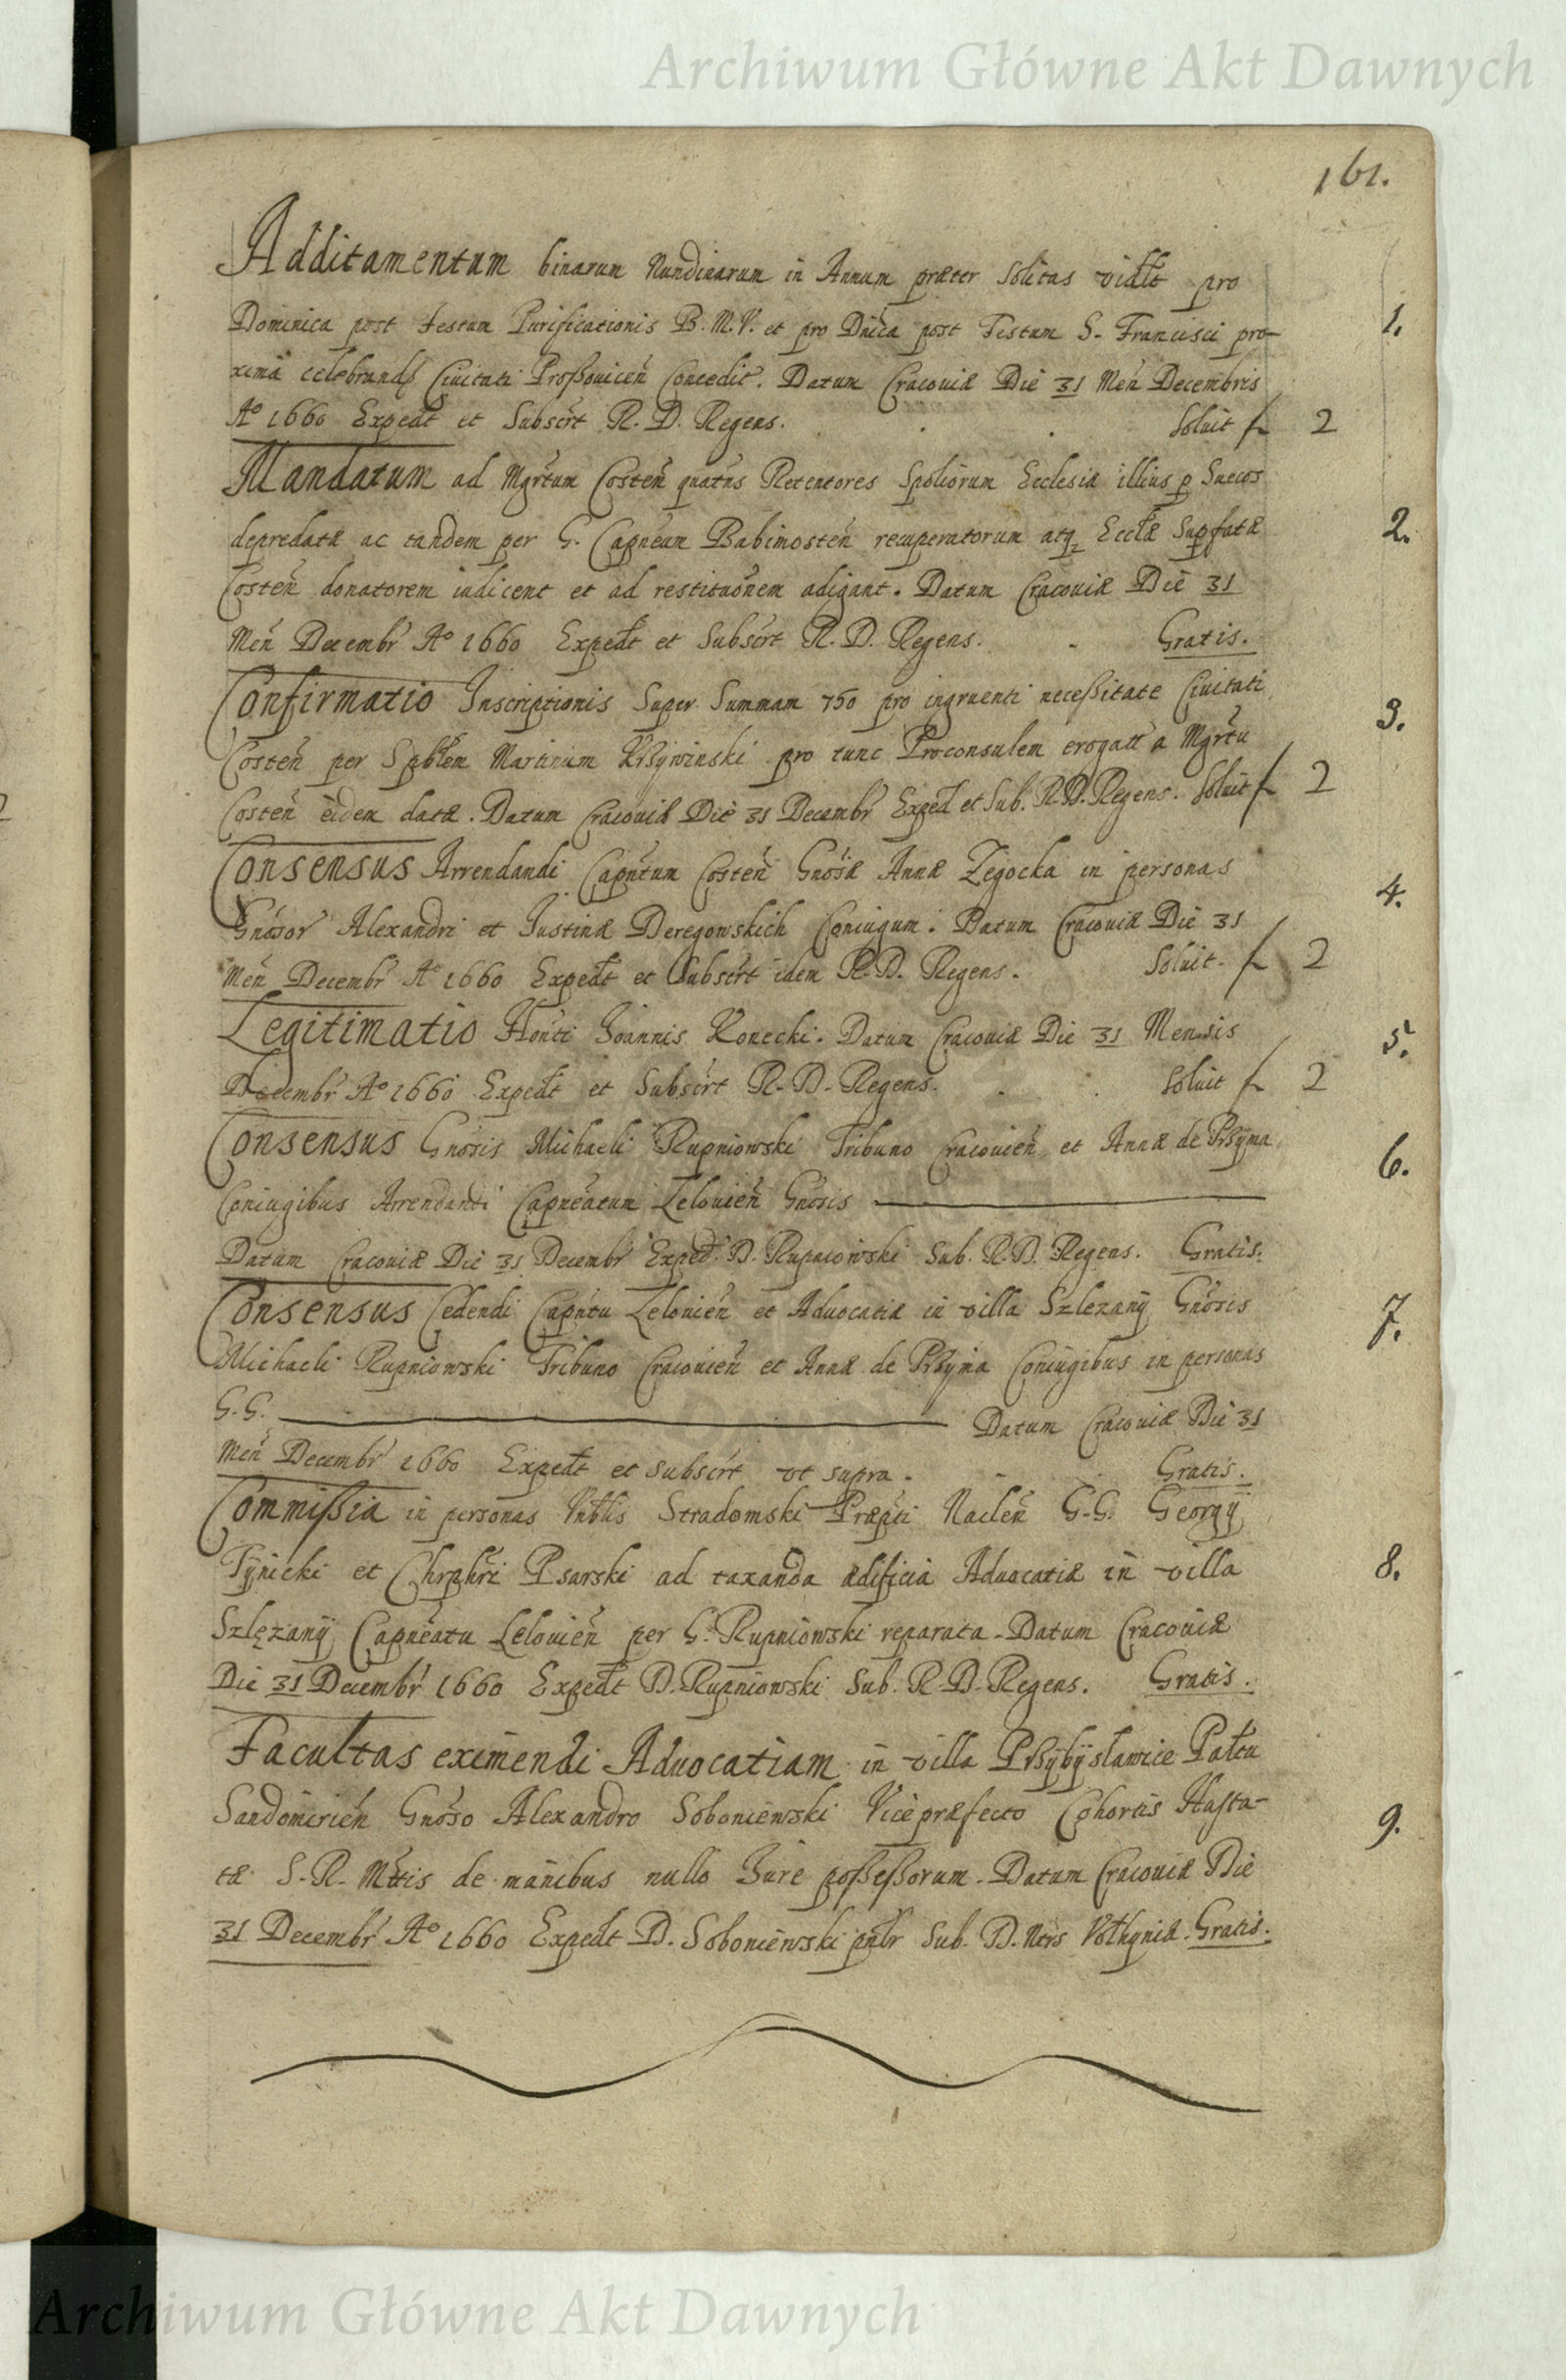 Archiwum Główne Akt Dawnych
161.
Additamentum binarum Nundinarum in Annum præter Solitas vidlt pro
Dominica post Festum Purificationis B. M. V. et pro Dnica post Festum S. Francisci pro- 1.
ximã celebrand Ciuitati Proßouicen̄ Concedit. Datum Cracouiæ Die 31 Men̄ Decembris
Aº 1660 Expedt et Subscrt R. D. Regens. Soluit f 2
Mandatum ad Mgrtum Costen̄ quatns Retentores Spoliorum Ecclesiæ illius p Suecos
depredatæ ac tandem per G. Capneum Babimosten̄ recuperatorum atq Eccłæ Supfatæ 2.
Costen̄ donatorem indicent et ad restituonem adigant. Datum Cracouiæ Die 31
Men̄ Decembr Aº 1660 Expedt et Subscrt R. D. Regens. Gratis.
Confirmatio Inscriptionis Super Summam 750 pro ingruenti neceßitate Ciuitati 3.
Costen̄ per Spblem Martinum Krzywinski pro tunc Proconsulem erogatt a Mgrtu
Costen̄ eidem datæ. Datum Cracouiæ Die 31 Decembr Exped et Sub. R. D. Regens. Soluit f 2
Consensus Arrendandi Capntum Costen̄ Gnosæ Annæ Zegocka in personas 4.
Gnosor Alexandri et Justinæ Deregowskich Coniugum. Datum Cracouiæ Die 31
Men̄ Decembr Aº 1660 Expedt et Subscrt idem R. D. Regens. Soluit f 2
Legitimatio Honti Joannis Konecki. Datum Cracouiæ Die 31 Mensis 5.
Decembr Aº 1660 Expedt et Subscrt R. D. Regens. Soluit f 2
Consensus Gnosis Michaeli Rupniowski Tribuno Cracouien̄ et Annæ de Przyma 6.
Coniugibus Arrendandi Capneatum Lelouien̄ Gnosis
Datum Cracouiæ Die 31 Decembr Exped. D. Rupniowski Sub. R. D. Regens. Gratis.
Consensus Cedendi Capntu Lelouien̄ et Aduocatiæ in villa Szlezany Gnosis 7.
Michaeli Rupniowski Tribuno Cracouien̄ et Annæ de Przyma Coniugibus in personas
G. G. Datum Cracouiæ Die 31
Men̄ Decembr 1660 Expedt et subscrt vt supra. Gratis.
Commißia in personas Vnblis Stradomski Præpti Naclen̄ G. G. Georgij
Tynicki et Chrphri Psarski ad taxanda ædificia Aduocatiæ in villa 8.
Szlęzanÿ Capneatu Lelouien̄ per G. Rupniowski reparata. Datum Cracouiæ
Die 31 Decembr 1660 Expedt D. Rupniowski Sub. R. D. Regens. Gratis.
Facultas eximendi Aduocatiam in villa Przybÿslawice Paltu
Sandomirien̄ Gnoso Alexandro Soboniewski Vicepræfecto Cohortis Hasta- 9.
tæ S. R. Mttis de manibus nullo Jure poßeßorum. Datum Cracouiæ Die
31 Decembr Aº 1660 Expedt D. Soboniewski pnlr Sub. D. Ners Volhyniæ. Gratis.
Archiwum Główne Akt Dawnych